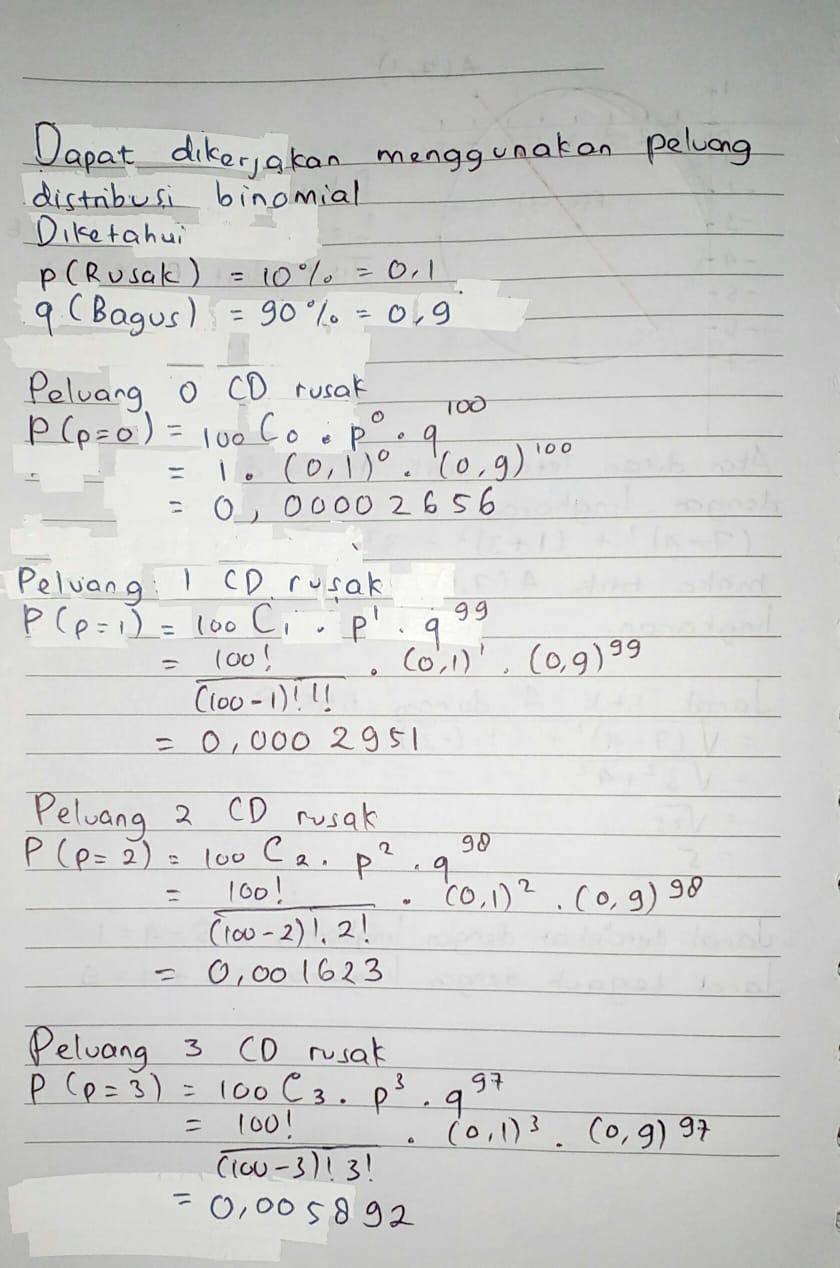 Dapat dikerjakan menggunakan peluang
distribusi binomial
Diketahui
p(Rusak) = 10% = 0,1
q (Bagus) = 90% = 0,9
Peluang 0 CD rusak
P(p=0) = 100 C0 . p⁰ . q¹⁰⁰
= 1 . (0,1)⁰ . (0,9)¹⁰⁰
= 0,00002656
Peluang 1 CD rusak
P(p=1) = 100 C1 . p¹ . q⁹⁹
= 100! . (0,1)¹ . (0,9)⁹⁹
(100-1)!1!
= 0,0002951
Peluang 2 CD rusak
P(p=2) = 100 C2 . p² . q⁹⁸
= 100! . (0,1)² . (0,9)⁹⁸
(100-2)!.2!
= 0,001623
Peluang 3 CD rusak
P(p=3) = 100 C3 . p³ . q⁹⁷
= 100! . (0,1)³ . (0,9)⁹⁷
(100-3)!3!
= 0,005892